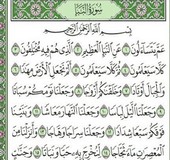 سُورَةُ النَّبَإِ
بِسْمِ اللَّهِ الرَّحْمَٰنِ الرَّحِيمِ
عَمَّ يَتَسَاءَلُونَ ١ عَنِ النَّبَإِ الْعَظِيمِ ٢ الَّذِي هُمْ فِيهِ مُخْتَلِفُونَ ٣
كَلَّا سَيَعْلَمُونَ ٤ ثُمَّ كَلَّا سَيَعْلَمُونَ ٥ أَلَمْ نَجْعَلِ الْأَرْضَ مِهَادًا ٦
وَالْجِبَالَ أَوْتَادًا ٧ وَخَلَقْنَاكُمْ أَزْوَاجًا ٨ وَجَعَلْنَا نَوْمَكُمْ سُبَاتًا
٩ وَجَعَلْنَا اللَّيْلَ لِبَاسًا ١٠ وَجَعَلْنَا النَّهَارَ مَعَاشًا ١١ وَبَنَيْنَا
فَوْقَكُمْ سَبْعًا شِدَادًا ١٢ وَجَعَلْنَا سِرَاجًا وَهَّاجًا ١٣ وَأَنْزَلْنَا مِنَ
الْمُعْصِرَاتِ مَاءً ثَجَّاجًا ١٤ لِنُخْرِجَ بِهِ حَبًّا وَنَبَاتًا ١٥